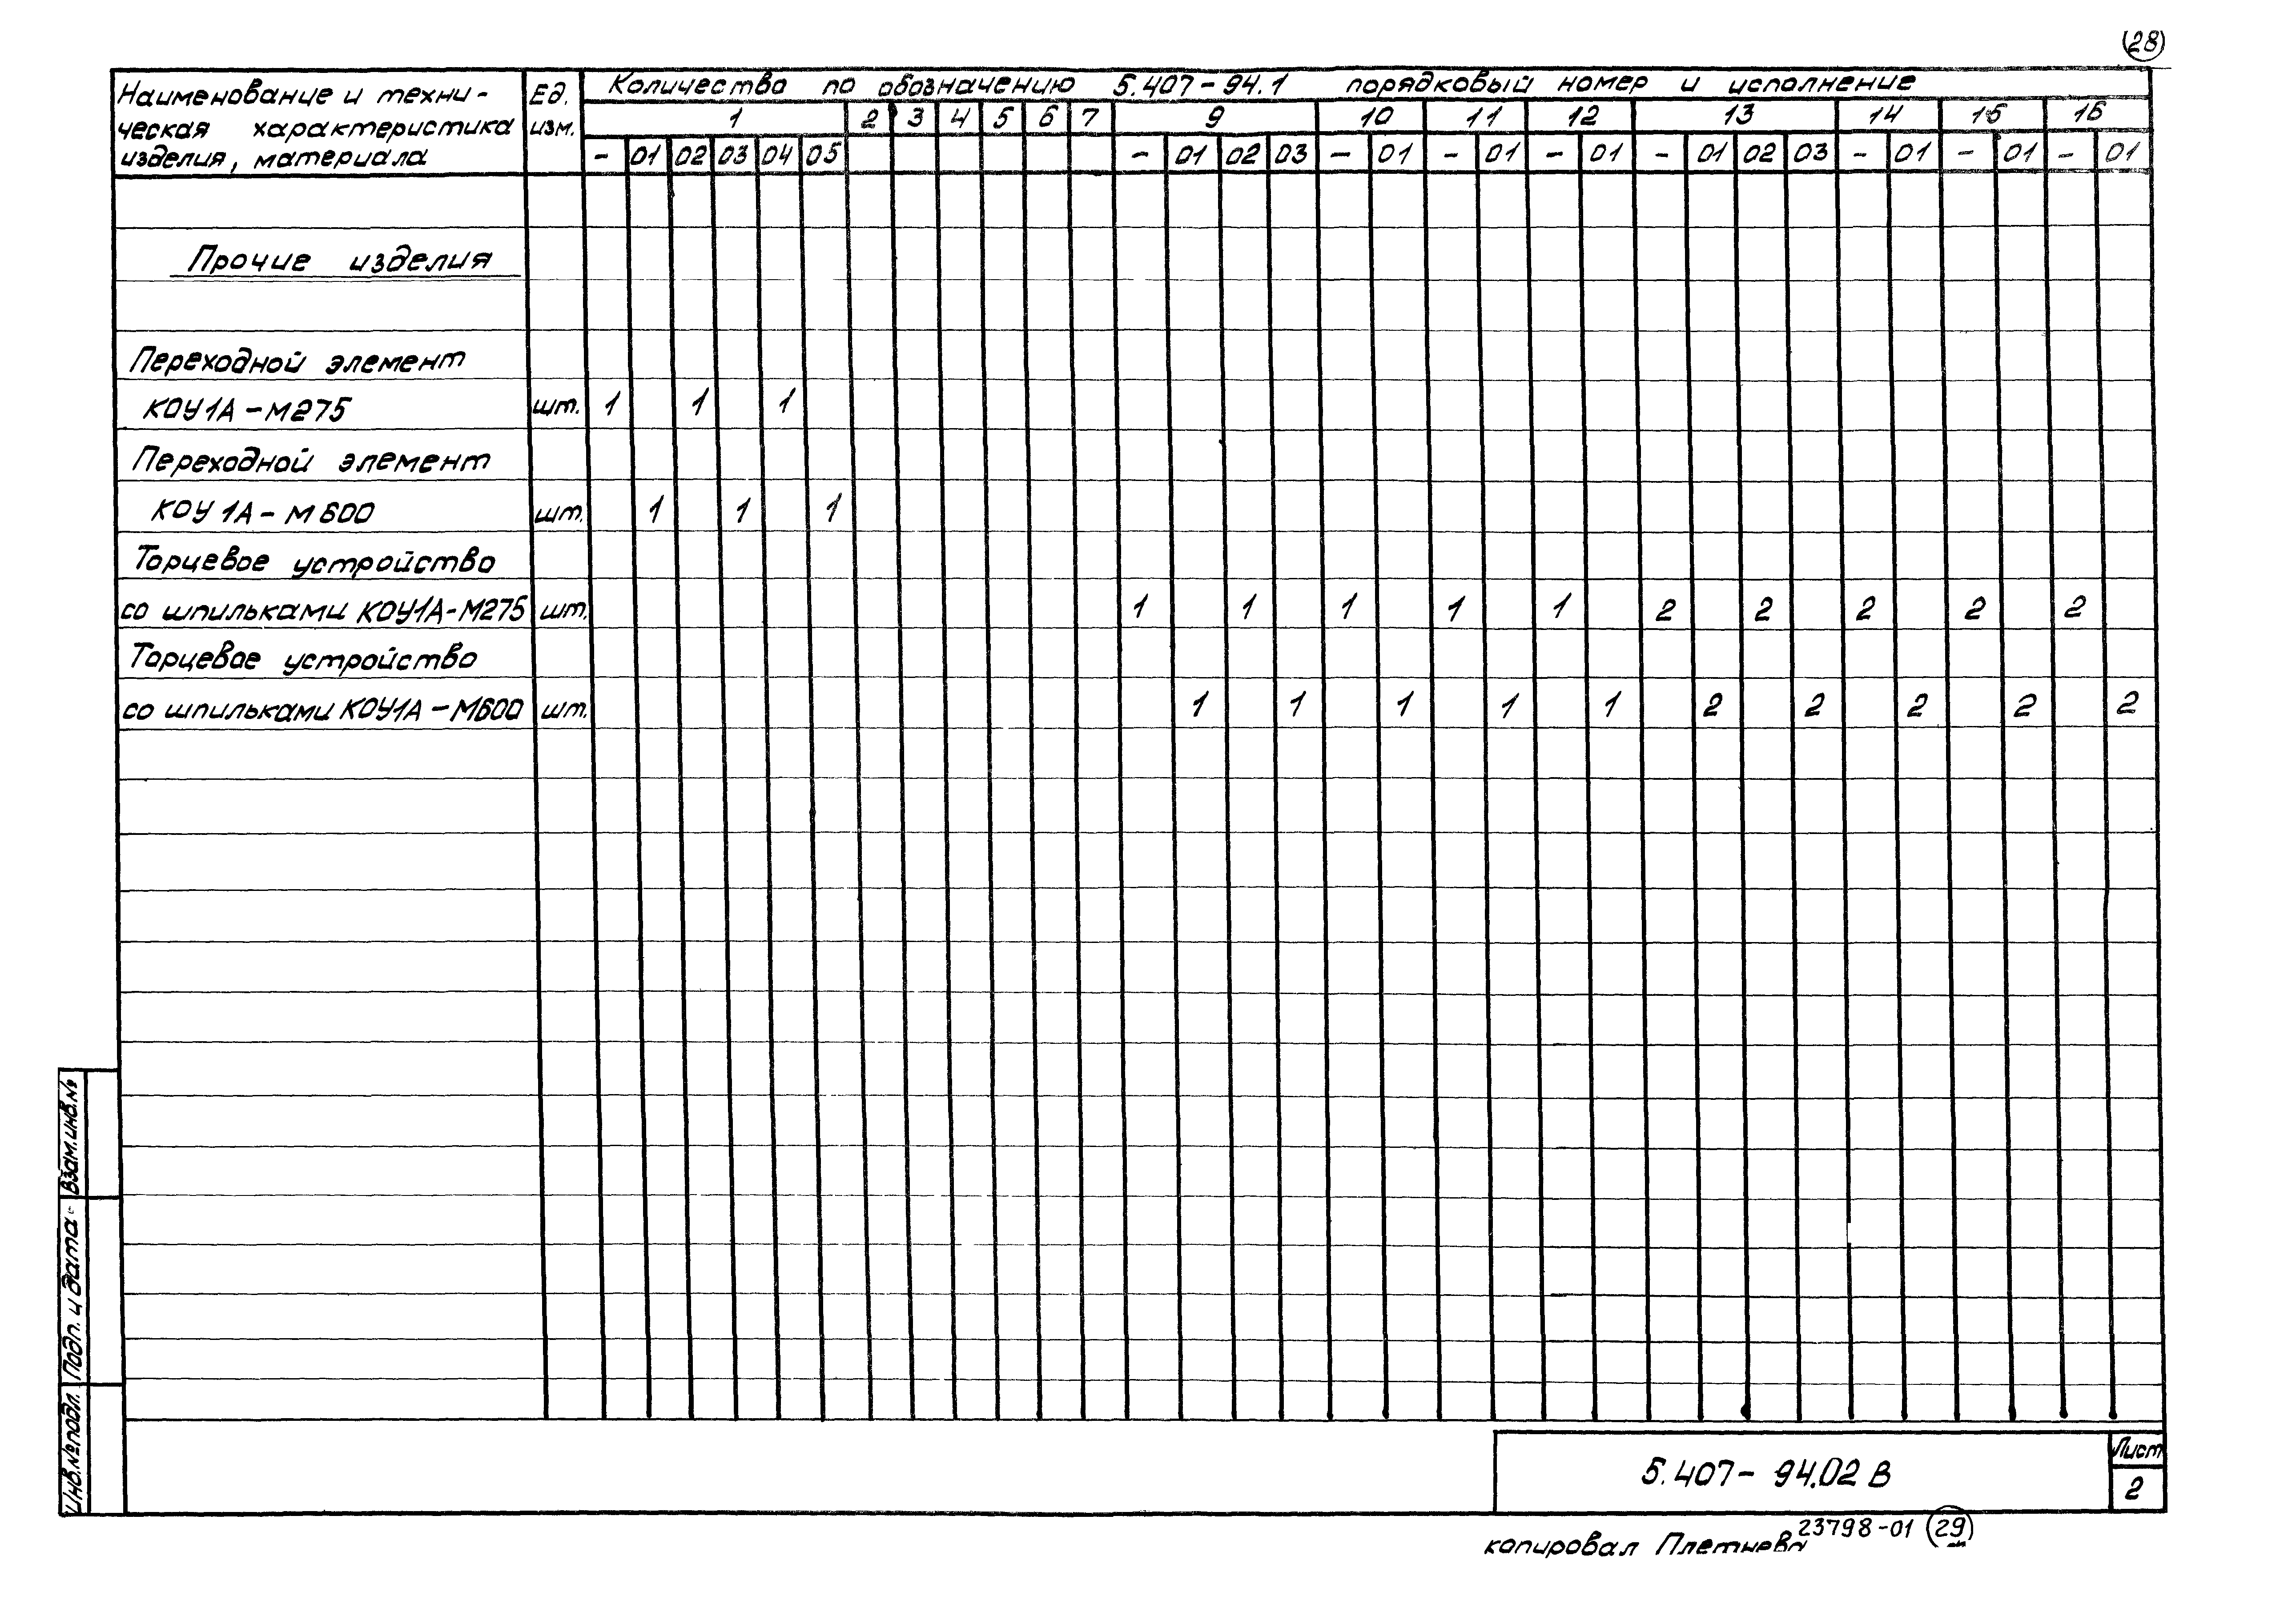 28
Наименование и техни-
ческая характеристика
изделия, материала
Ед.
изм.
Количество по обозначению 5.407-94.1 порядковый номер и исполнение
1 2 3 4 5 6 7 9 10 11 12 13 14 15 16
- 01 02 03 04 05 - 01 02 03 - 01 - 01 - 01 - 01 02 03 - 01 - 01 - 01
Прочие изделия
Переходной элемент
КОУ1А-М275 шт. 1 1 1
Переходной элемент
КОУ 1А-М600 шт. 1 1 1
Торцевое устройство
со шпильками КОУ1А-М275 шт. 1 1 1 1 1 2 2 2 2 2
Торцевое устройство
со шпильками КОУ1А-М600 шт. 1 1 1 1 1 2 2 2 2 2
Взам.инв.№
Подп. и дата
Инв.№подл.
5.407-94.02 В
Лист
2
копировал Плетнева
23798-01 29